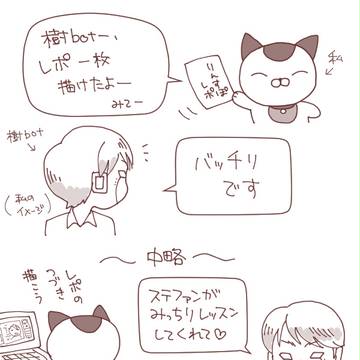 樹botー、
レポ一枚
描けたよー
みてー
りんすぽ
レポ
私
樹bot
(私のイメージ)
バッチリ
です
〜中略〜
レポの
つづき
描こう
ステファンが
みっちりレッスン
してくれて♡